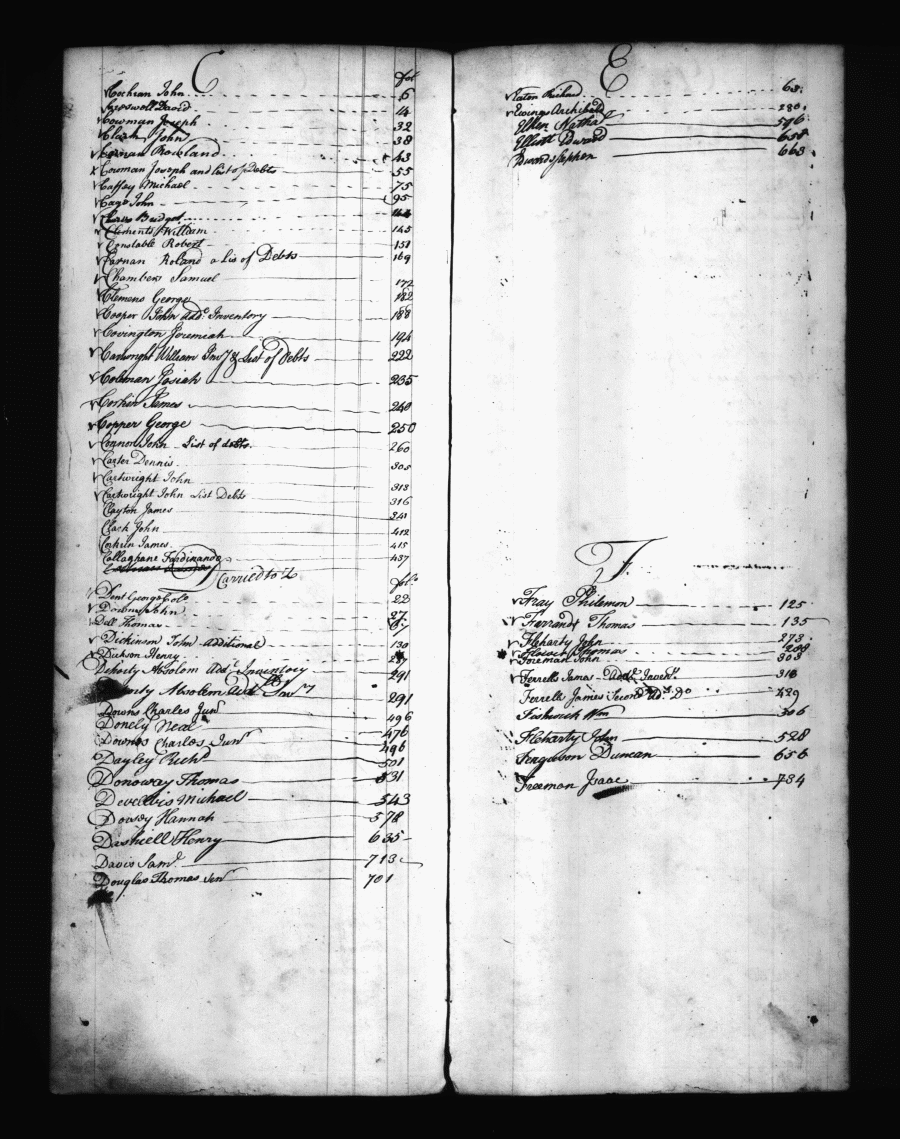 C
fol
Cochran John 6
Cresswell David 14
Bowman Joseph 32
Clark John 38
Rowland 43
Cowman Joseph and List of Debts 55
Caffey Michael 75
Cage John 95
Bridget
Clements William 145
Constable Robert 151
Carnan Roland a Lis of Debts 169
Chambers Samuel 172
Clemens George 182
Cooper John add.l Inventory 188
Covington Jeremiah 194
Cartwright William Inv.y & List of Debts 222
Coleman Josiah 235
Corkin James 240
Copper George 250
Connor John List of debts 260
Carter Dennis 305
Cartwright John 313
Cartwright John List Debts 316
Clayton James 341
Clack John 412
Corkrin James 415
Callaghane Ferdinando 437
Carried to
D
fol.
Dent George Cole 22
Downes John 27
Dell Thomas
Dickinson John additional 130
Dickson Henry 237
Doherty Absolom Add.l Inventory 291
Absolem Add.l Inv.y 291
Downs Charles Jun.r 496
Donely Neal 476
Downes Charles Jun.r 496
Dayley Rich.d 501
Donoway Thomas 531
Develbis Michael 543
Dorsey Hannah 578
Dashiell Henry 635
Davis Sam.l 713
Douglas Thomas Sen.r 701
E
Eaton Richard 63
Ewings Archibald 280
Ellen Nathal 596
Elliott Edward 658
Edwards Stephen 663
F.
Fray Philemon 125
Farrandt Thomas 135
Fleharty John 273
Flower Thomas 288
Foreman John 303
Ferrells James Add.l Invent.y 318
Ferrell James Second Ad.l Do 429
Fishwick Wm 306
Fleharty John 528
Ferguson Duncan 656
Freeman Isaac 734